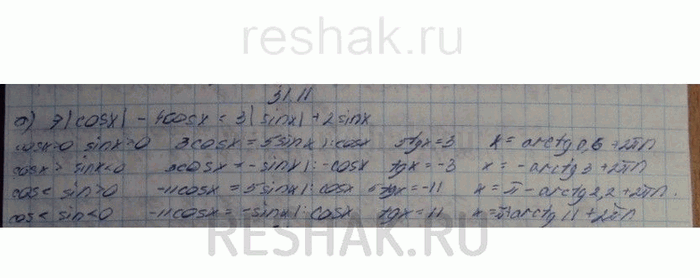 reshak.ru
31.11
а) 7|cosx| - 4cosx = 3|sinx| + 2sinx
cosx>0 sinx>0 3cosx = 5sinx|:cosx 5tgx=3 x = arctg 0,6 + 2πn
cosx> sinx<0 3cosx = -sinx|:-cosx tgx = -3 x = -arctg 3 + 2πn
cos< sin>0 -11cosx = 5sinx|:cosx 5tgx = -11 x = π - arctg 2,2 + 2πn.
cos< sin<0 -11cosx = -sinx|:cosx tgx = 11 x = π+arctg 11 + 2πn
RESHAK.RU